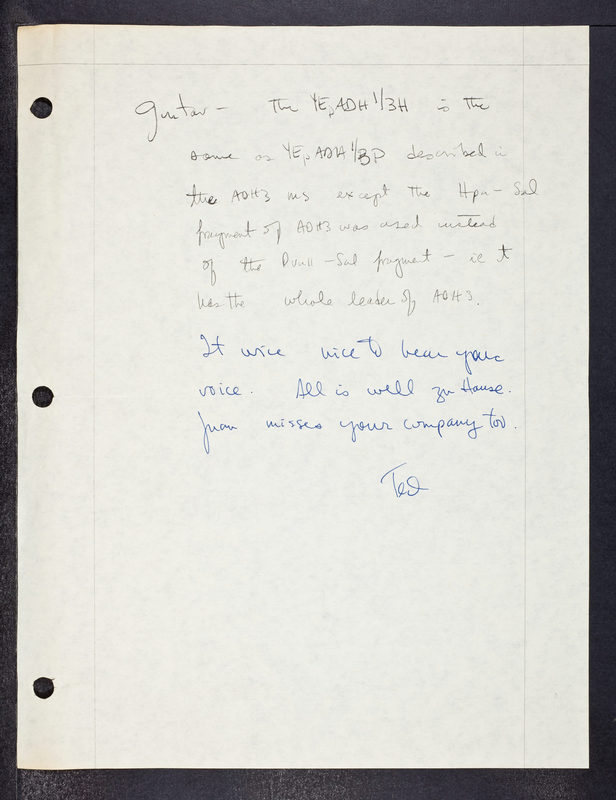 Gustav – The YEpADH 1/3H is the
same as YEpADH 1/3P described in
the ADH3 ms except the Hpa – Sal
fragment of ADH3 was used instead
of the PvuII – Sal fragment – ie it
has the whole leader of ADH3.
It wice nice to hear your
voice. All is well zu Hause.
Juan misses your company too.
Ted